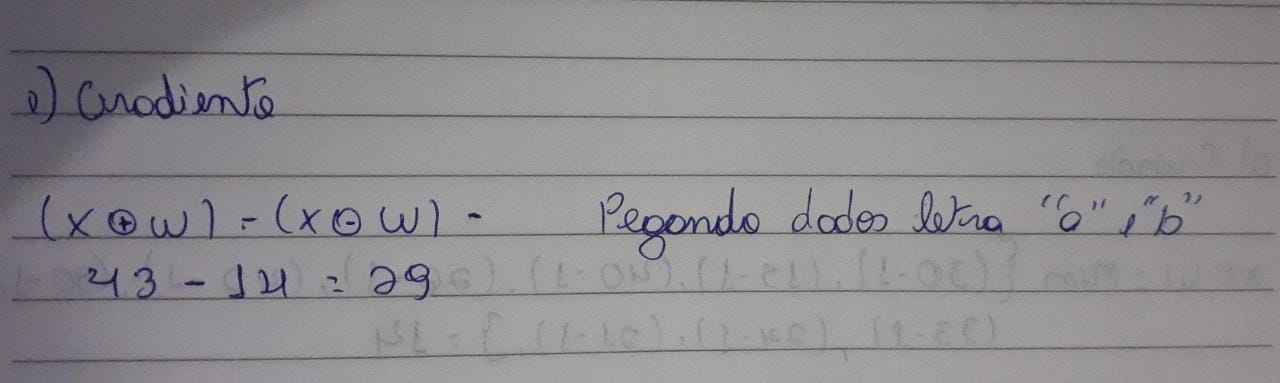 e) Gradiente
(X ⊕ W) - (X ⊖ W) - Pegando dados letra "a" e "b"
43 - 14 = 29